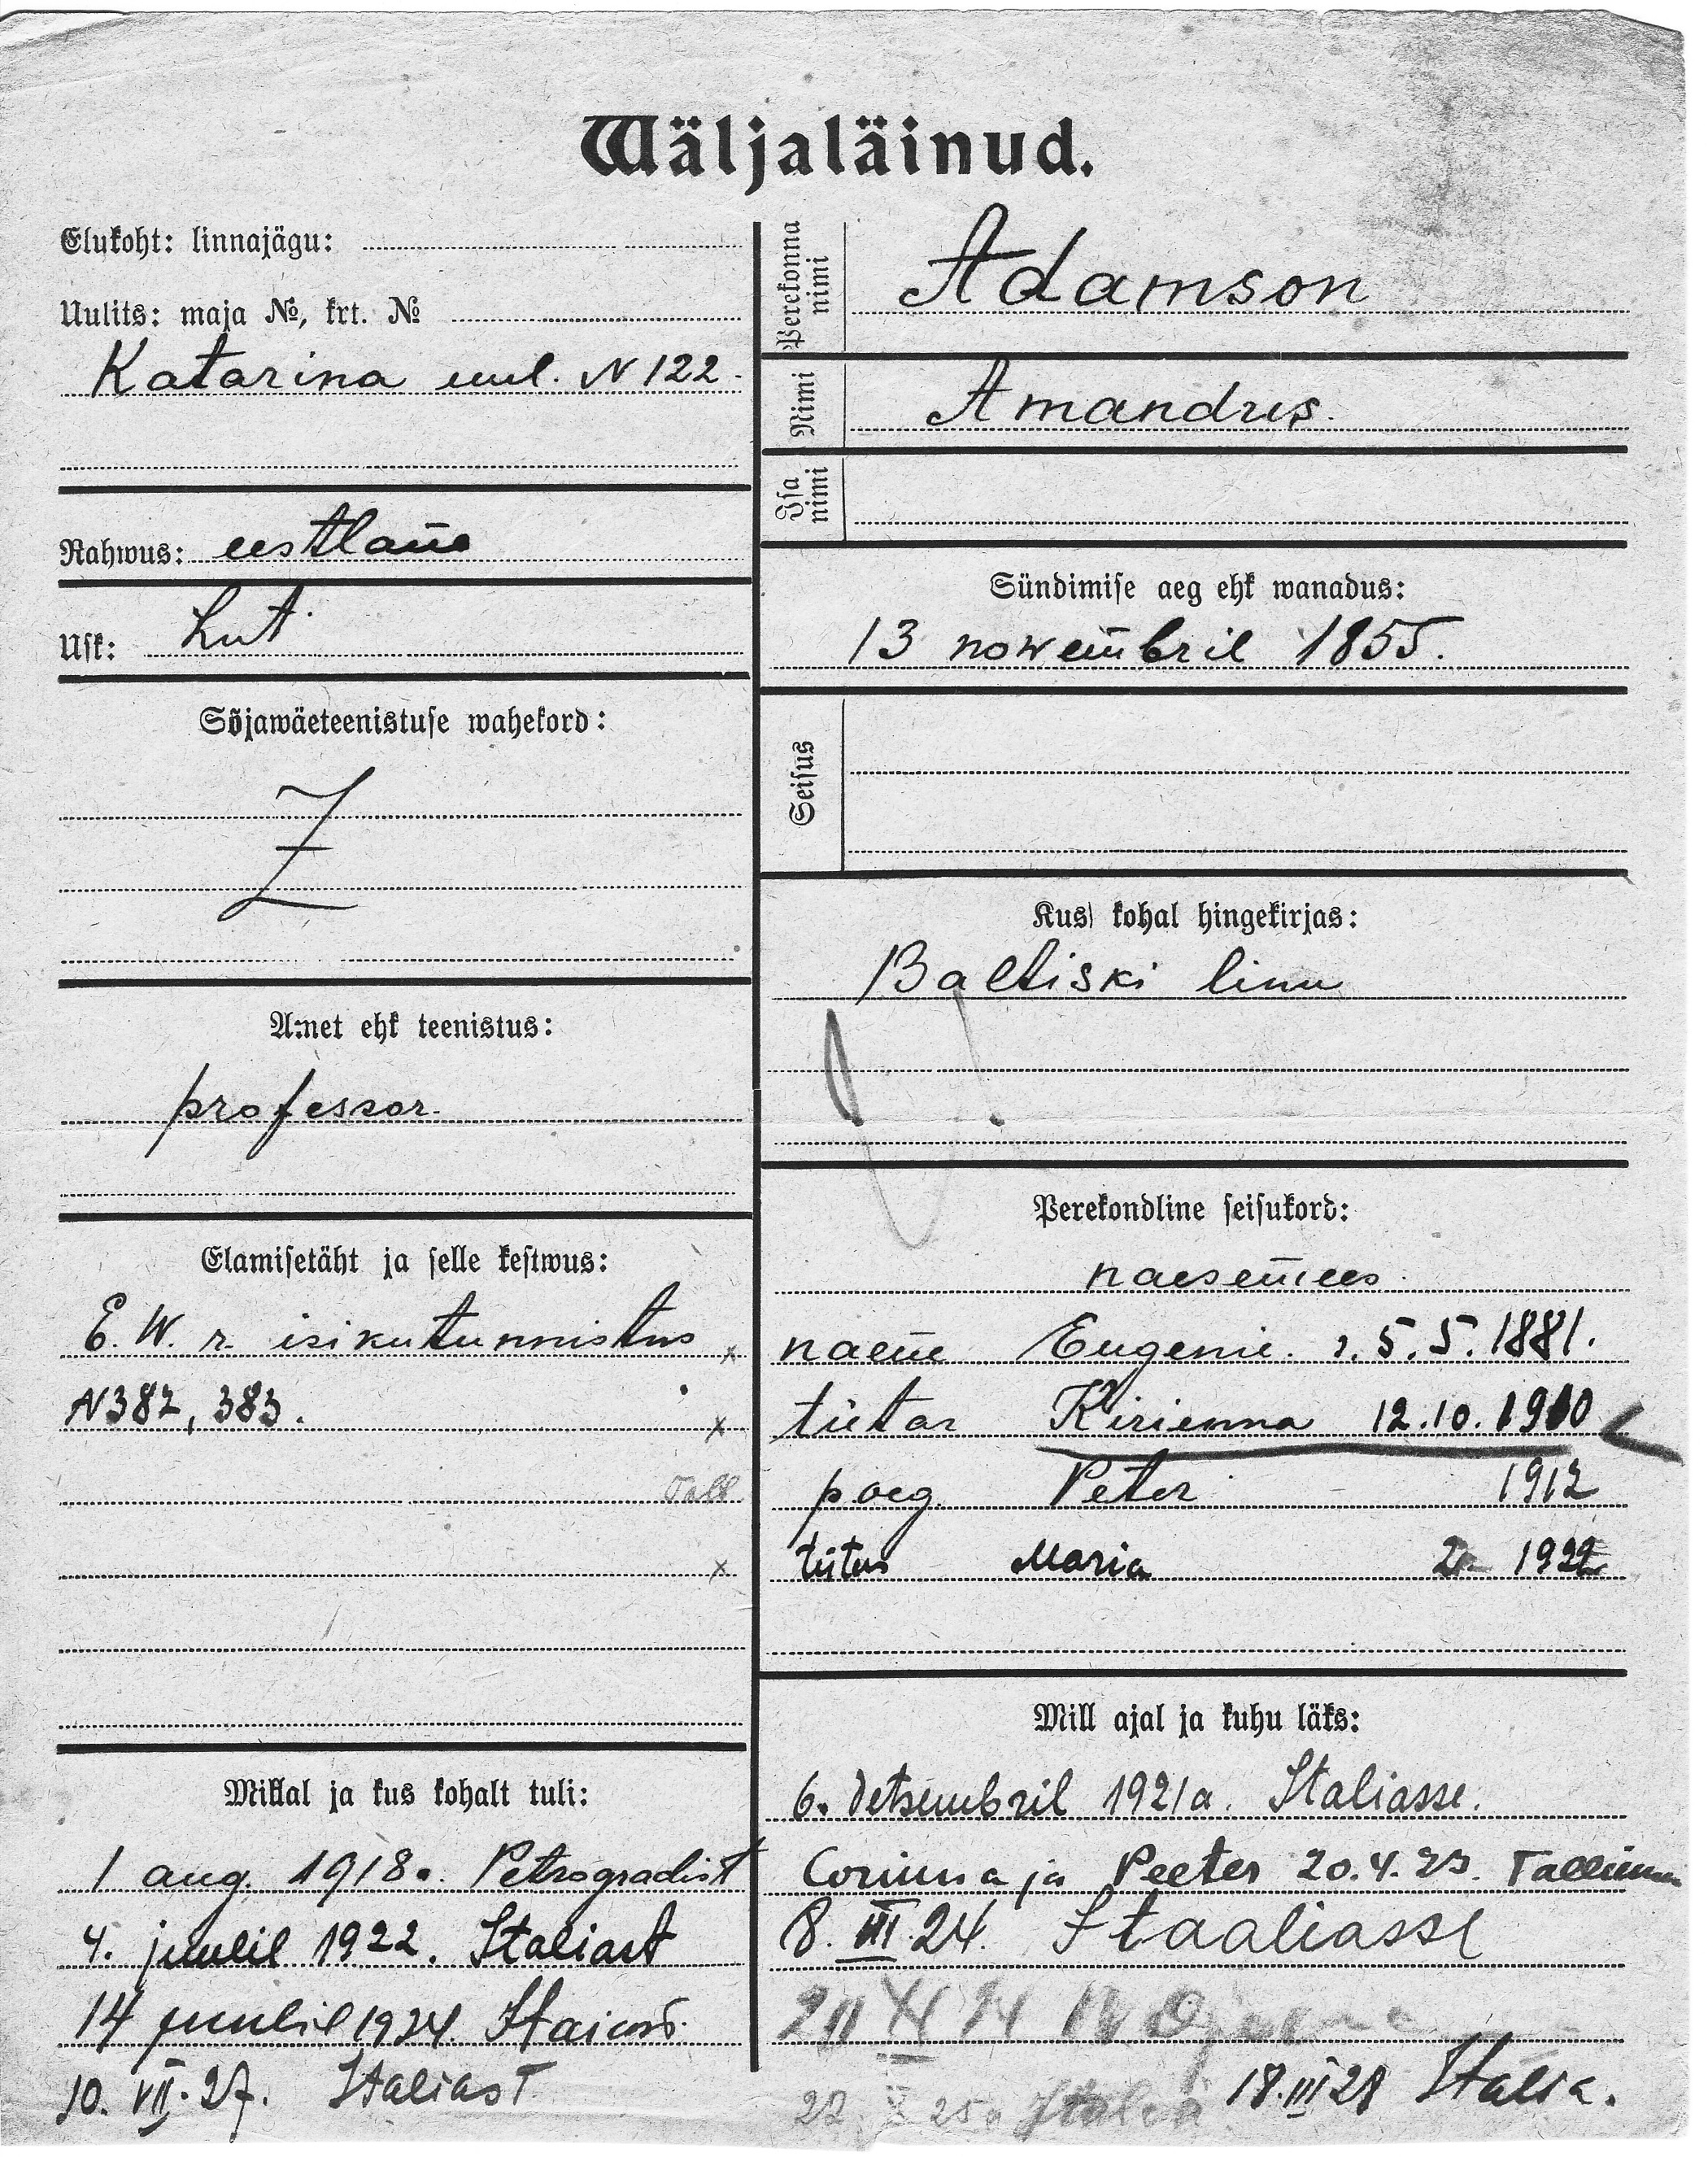 Wäljaläinud.
Elukoht: linnajägu:
Uulits: maja №, krt. №
Katarina uul. N 122.
Rahwus: eestlane
Usk: Lut.
Sõjawäeteenistuse wahekord:
Amet ehk teenistus:
professor.
Elamisetäht ja selle kestwus:
E. W. r. isikutunnistus
N 382, 383.
Tall
Millal ja kus kohalt tuli:
1 aug. 1918. Petrogradist
4. juulil 1922. Italiast
14 juulil 1924.
10. VII. 27. Italiast
Perekonna nimi
Adamson
Nimi
Amandus.
Isa nimi
Sündimise aeg ehk wanadus:
13 nowembril 1855.
Seisus
Kus kohal hingekirjas:
Baltiski linn
Perekondline seisukord:
naesemees.
naene Eugenie. s. 5.5.1881.
tütar Kirienna 12.10.1910
poeg. Peter 1912
tütar Maria 1922
Mill ajal ja kuhu läks:
6. detsembril 1921 a. Italiasse.
Corinna ja Peeter 20.4.23. Tallinna
8. III. 24. Itaaliasse
22. X 25a Italia
18. III 28 Italia.